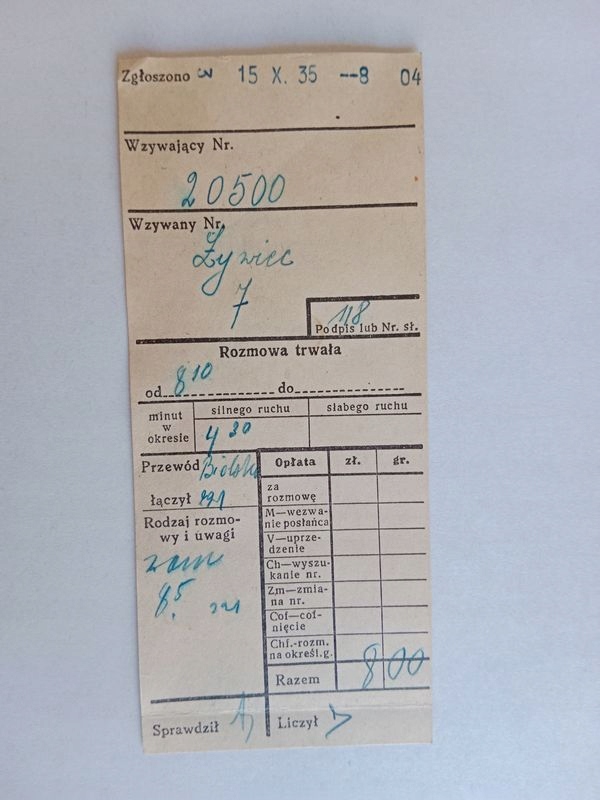 Zgłoszono 3 15 X. 35 --8 04
Wzywający Nr.
20500
Wzywany Nr.
Żywiec
7
118
Podpis lub Nr. sł.
Rozmowa trwała
od 8 10 do
minut w okresie
silnego ruchu
słabego ruchu
4 30
Przewód Bielsko
łączył 221
Rodzaj rozmo-
wy i uwagi
zam
8 5. 221
Opłata zł. gr.
za
rozmowę
M—wezwa-
nie posłańca
V—uprze-
dzenie
Ch—wyszu-
kanie nr.
Zm—zmia-
na nr.
Cof—cof-
nięcie
Chf.-rozm.
na określ. g.
Razem 8 00
Sprawdził
Liczył